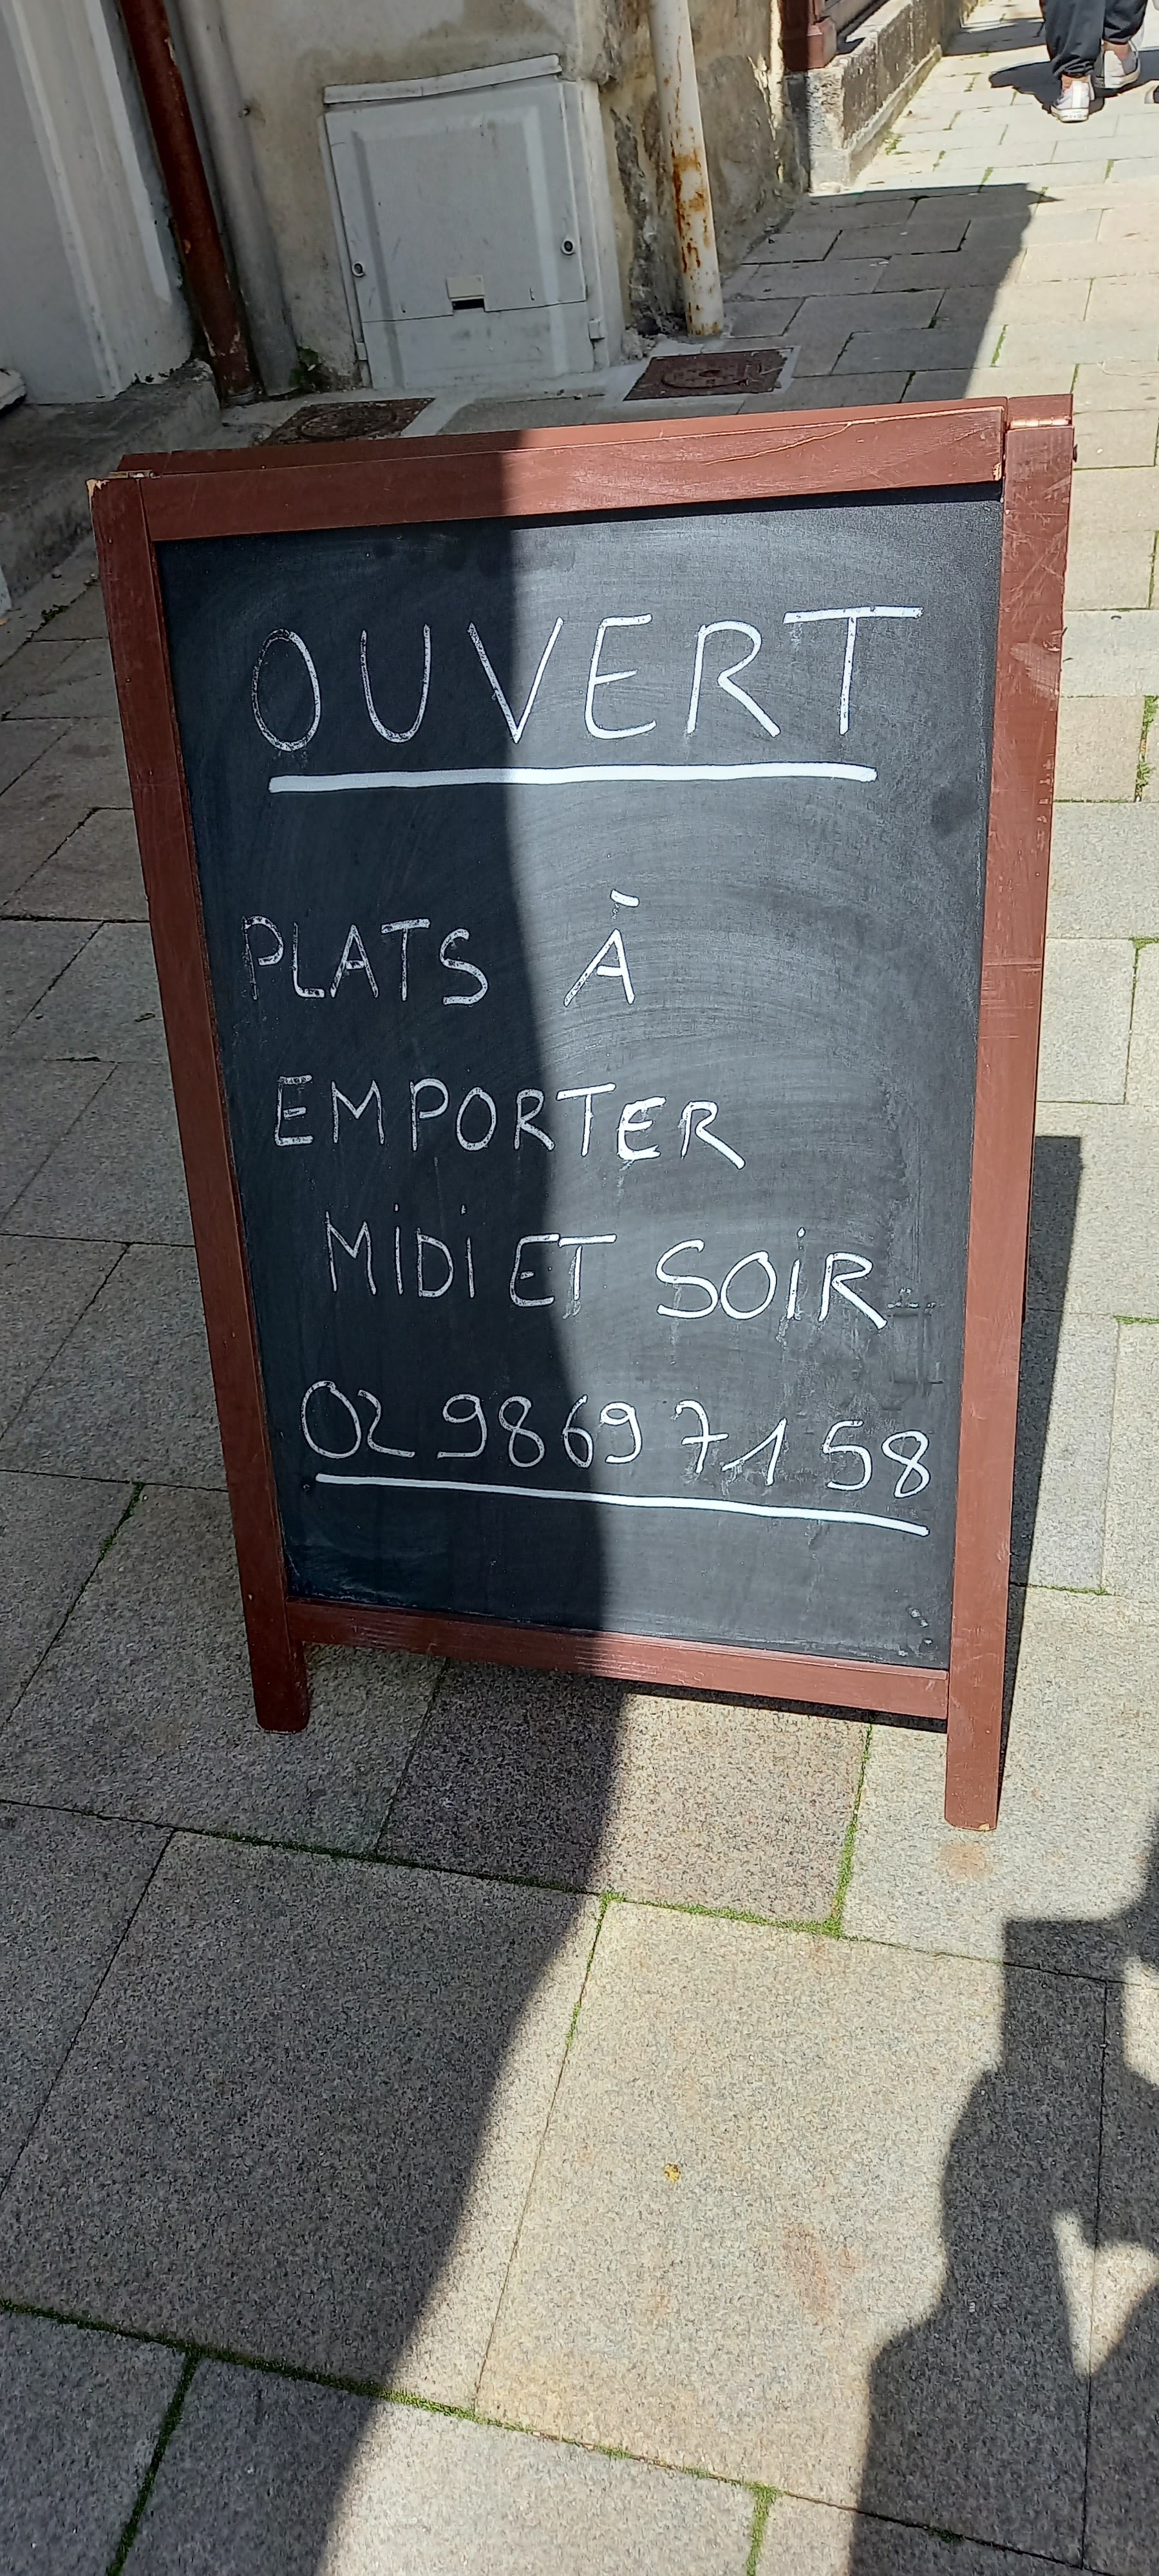 OUVERT
PLATS À
EMPORTER
MiDi ET SOiR
02 98 69 71 58